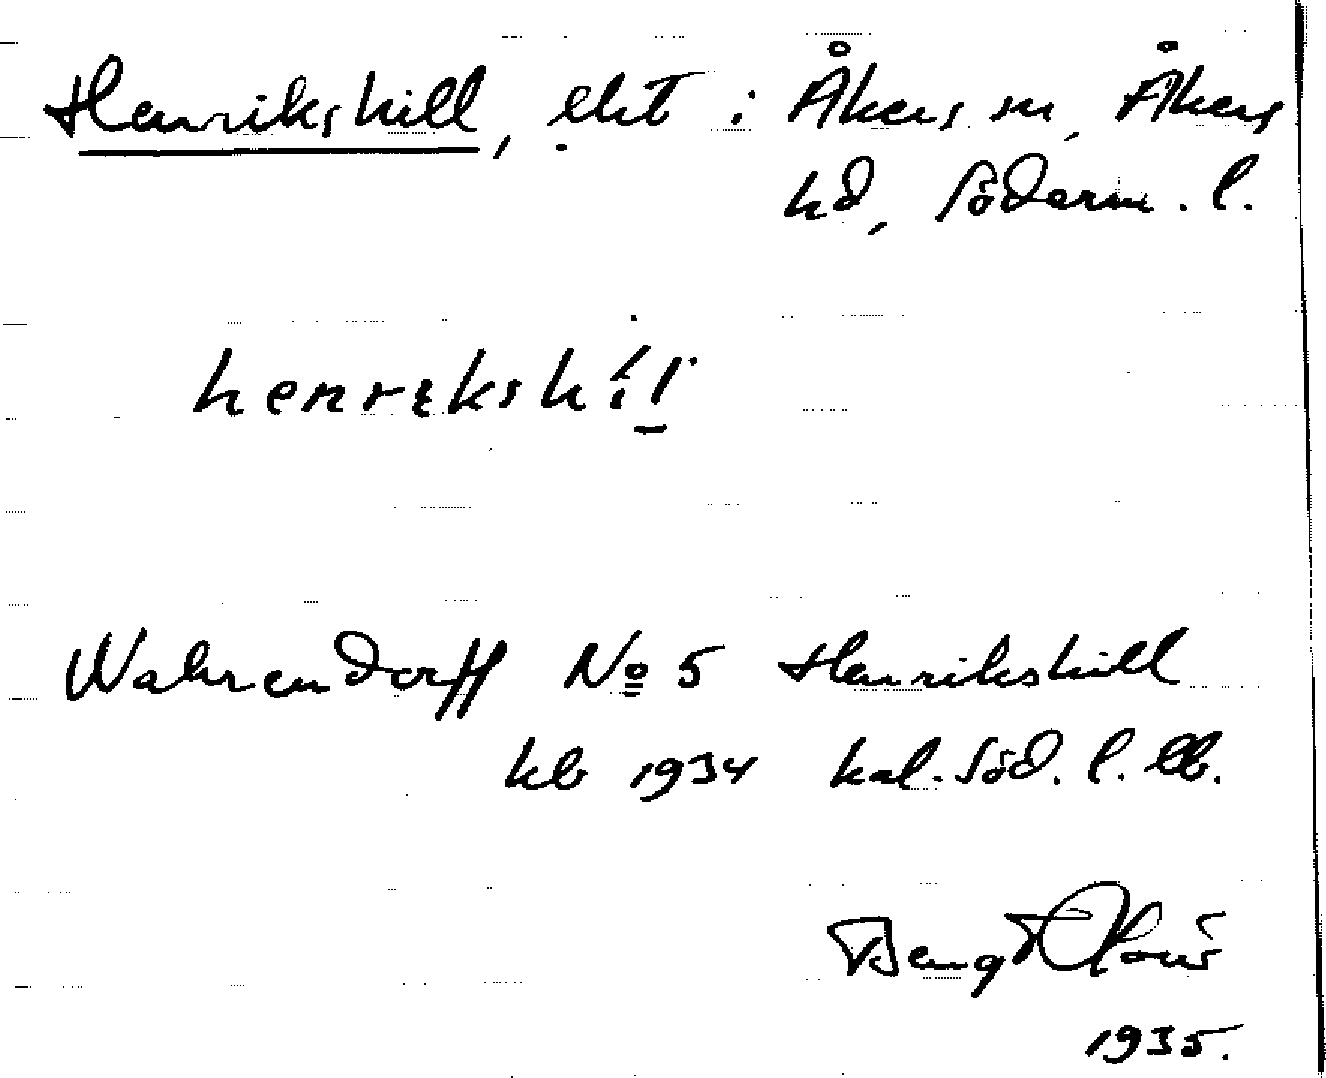 Henrikshill, lht i Åkers sn, Åkers
hd, Söderm. l.
henrikshil
Wahrendorff No 5 Henrikshill
kb 1934 kal. Söd. l. lb.
Bengt
1935.